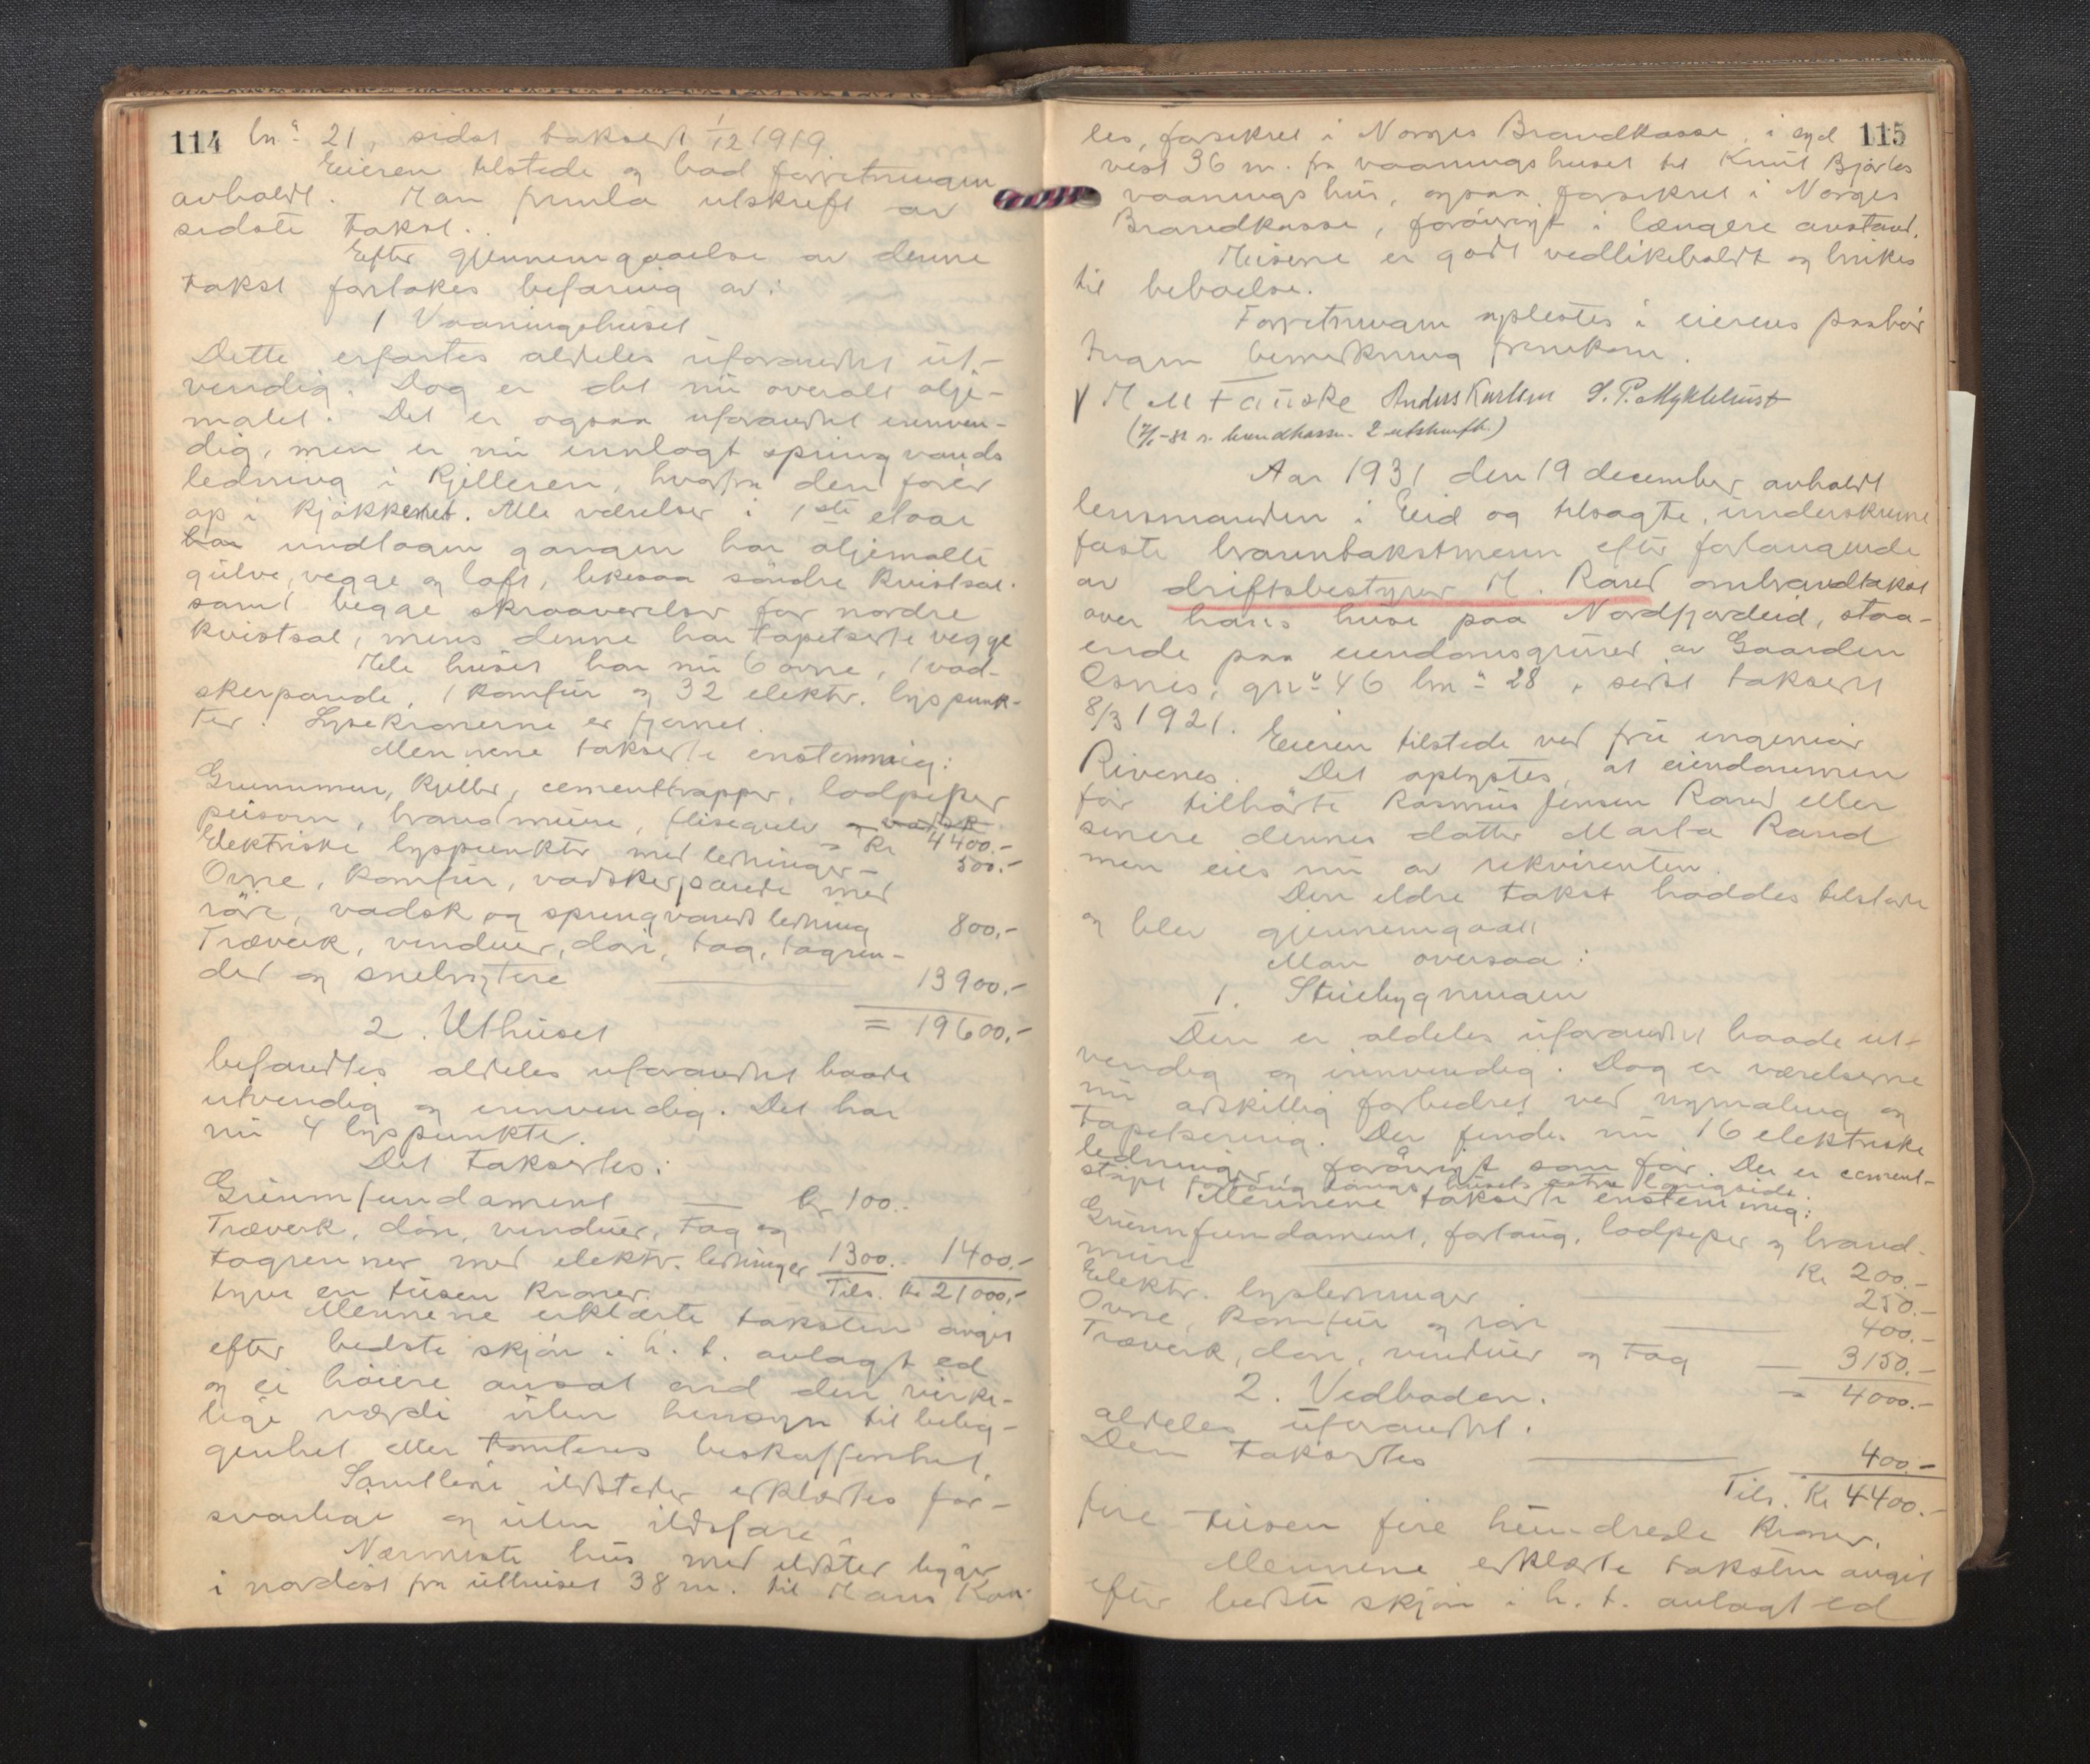 114 bn.° 21, sidst taksert 1/12 1919.
Eieren tilstede og bad forretningen
avholdt. Han fremla utskrift av
sidste takst.
Efter gjennemgaaelse av denne
takst foretokes befaring av:
1 Vaaningshuset
Dette erfartes aldeles uforandret ut-
vendig. Dog er det nu overalt olje-
malet. Det er ogsaa uforandret innven-
dig, men er nu innlagt springvands
ledning i Kjelleren, hvorfra den fører
op i Kjøkkenet. Alle værelser i 1ste etage
har undtagen gangen har oljemalte
gulve, vegge og loft, likesaa søndre kvistsal
samt begge skraaværelser for nordre
kvistsal, mens denne har tapetserte vegge
Hele huset har nu 6 ovne, 1 vad-
skerpande, 1 komfur og 32 elektr. lyspunk-
ter. Lysekronerne er fjernet.
Mennene takserte enstemmig:
Grunnmur, kjeller, cementtrapper, lodpiper
peisovn, brandmure, flisegulv og vadsk
= Kr 4400.-
Elektriske lyspunkter med ledninger - 500.-
Ovne, komfur, vadskerpande med
rør, vadsk og springvands ledning 800.-
Træverk, vinduer, dør, tag, tagren-
der og snefangere 13900.-
= 19600.-
2. Uthuset
befandtes aldeles uforandret baade
utvendig og innvendig. Det har
nu 4 lyspunkter.
Det taksertes:
Grunnfundament — kr 100.-
Træverk, dør, vinduer, tag og
tagrenner med elektr. ledninger 1300.- 1400.-
tyve en tusen kroner. Tils. kr 21000.-
Mennene erklærte taksten avgit
efter bedste skjøn i h. t. avlagt ed
og ei høiere ansat end den virke-
lige værdi uten hensyn til belig-
genhet eller tomtens beskaffenhet.
Samtlige ildsteder erklærtes for-
svarlige og uten ildsfare.
Nærmeste hus med ildster ligger
i nordøst fra uthuset 38 m. til Hans
115
les, forsikret i Norges Brandkasse, i syd
vest 36 m. fra vaaningshuset til Knut Bjørlos
vaaningshus, ogsaa forsikret i Norges
Brandkasse, forøvrigt i længere avstand.
Husene er godt vedlikeholdt og brukes
til beboelse.
Forretningen oplestes i eierens paahør
Ingen bemerkning fremkom.
H M Fauske Anders Karlsen S. P. Myklebust
Aar 1931 den 19 december avholdt
lensmanden i Eid og tilsagte, underskrevne
faste branntakstmenn efter forlangende
av driftsbestyrer M. Rand ombrandtakst
over hans huse paa Nordfjordeid, staa-
ende paa eiendomsgrund av Gaarden
Osnes, gn.° 46 bn.° 28, sidst taksert
8/3 1921.
Eieren tilstede ved fru ingeniør
Rivenes. Det oplystes, at eiendommen
før tilhørte Rasmus Jensen Rand eller
senere dennes datter Marta Rand
men eies nu av rekvirenten.
Den eldre takst haddes tilstede
og blev gjennemgaatt
Man oversaa:
1. Stuebygningen
Den er aldeles uforandret baade ut-
vendig og innvendig. Dog er værelserne
nu adskillig forbedret ved nymaling og
tapetsering. Der findes nu 16 elektriske
ledninger, forøvrigt som før. Der er cement-
støpt fortaug langs husets østre langside.
Mennene takserte enstemmig:
Grunnfundament, fortaug, lodpiper og brand-
mure Kr 200.-
Elektr. lysledninger 250.-
Ovne, komfur og rør 400.-
Træverk, dør, vinduer og tag — 3150.-
= 4000.-
2. Vedboden.
aldeles uforandret.
Den taksertes 400.-
Tils. Kr 4400.-
fire tusen fire hundrede kroner.
Mennene erklærte taksten avgit
efter bedste skjøn i h. t. avlagt ed